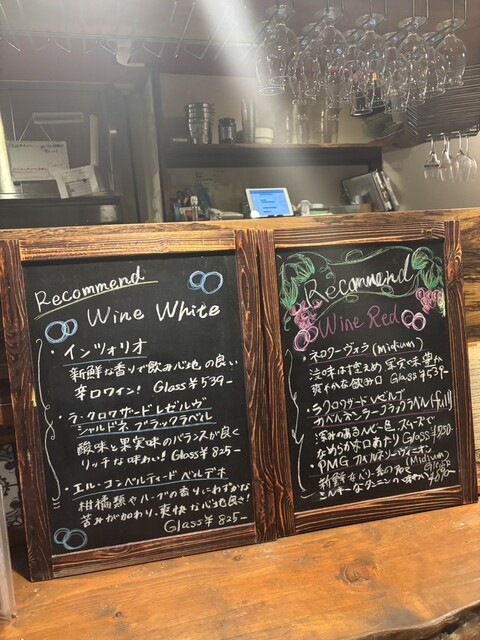 Recommend
Wine White
・インツォリオ
新鮮な香りで飲み心地の良い
辛口ワイン! Glass¥539-
・ラ・クロワザード レゼルヴ
シャルドネ ブラックラベル
酸味と果実味のバランスが良く
リッチな味わい! Glass¥825-
・エル・コンベルティード ベルデホ
柑橘類やハーブの香りにわずかな
苦みが加わり、爽快な心地良さ!
Glass¥825-
Recommend
Wine Red
・ネロダーヴォラ (Midium)
渋味は控えめ 果実味豊か
爽やかな飲み口 Glass¥539-
・ラ クロワザード レゼルヴ
カベルネ シラー ブラックラベル (full)
深みのあるルビー色 スムーズで
なめらかな口あたり Glass
・PMG カベルネソーヴィニオン
(Midium)
Glass